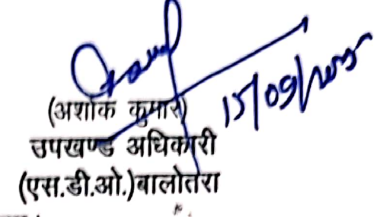 15/09/2025
(अशोक कुमार)
उपखण्ड अधिकारी
(एस.डी.ओ.)बालोतरा